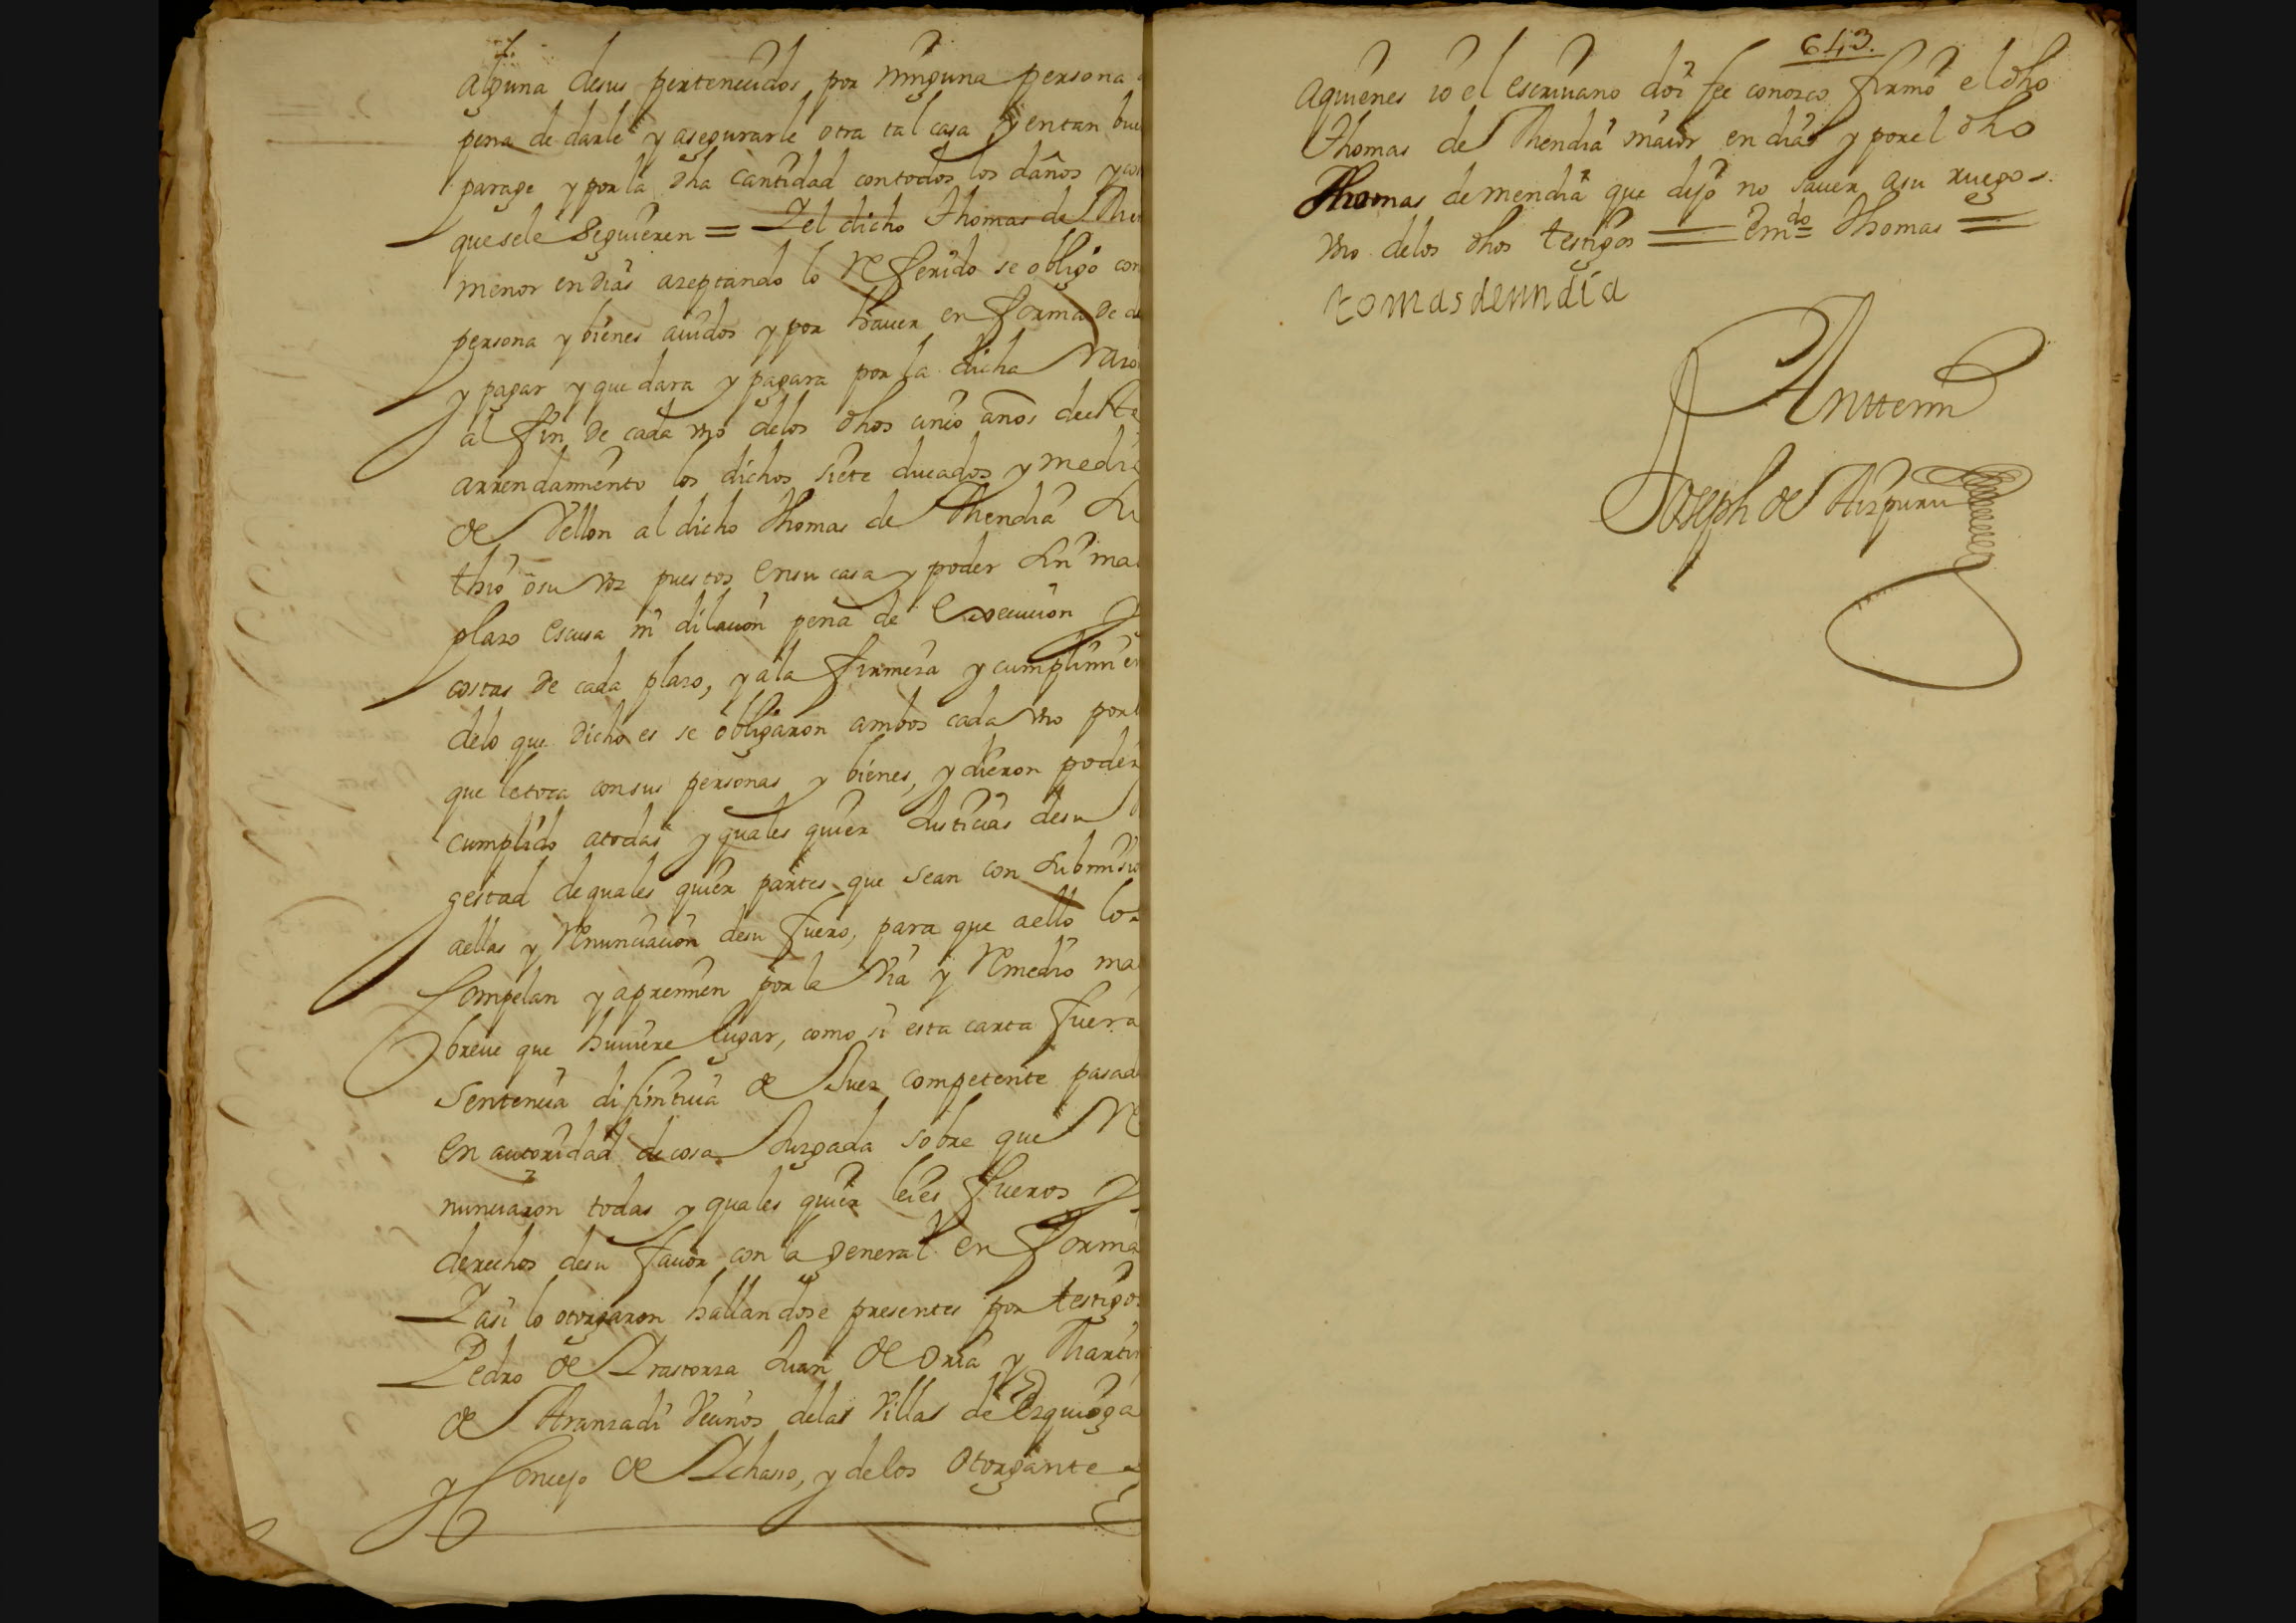 alguna desus pertenecidos por ninguna persona
pena de darle y asegurarle otra tal casa y en tan bue
parage y por la dha cantidad contodos los daños y cos
que sele siguieren = Y el dicho Thomas de Men
menor en dias azeptando lo Referido se obligó con
persona y bienes auidos y por hauer en forma de da
y pagar y que dara y pagara por la dicha Razo
al fin de cada vno delos dhos cinco años deeste
arrendamiento los dichos siete ducados y medio
de Vellon al dicho Thomas de Mendia Su
thio o su voz puestos en su casa y poder sin mas
plazo escusa ni dilacion pena de Execucion y
costas de cada plazo, y a la firmeza y cumplimie
delo que dicho es se obligaron ambos cada vno por l
que le toca consus personas y bienes, y dieron poder
cumplido atodas y quales quier Justicias desu
gestad de quales quier partes que sean con Submisio
aellas y Renunciacion desu fuero, para que aello los
Compelan y apremien por la via y Remedio mas
breue que huuiere lugar, como si esta carta fuera
sentencia difinitiua de Juez competente pasad
en autoridad de cosa Juzgada sobre que Re
nunciaron todas y quales quier leies fueros y
derechos desu fauor con la general en forma
Y asi lo otorgaron hallandose presentes por testigos
Pedro de Yrastorza Juan de Oria y Martin
de Aranzadi vecinos delas Villas de Ezquioga
y Concejo de Ychaso, y delos Otorgantes
643.
aquienes io el escriuano doi fee conozco firmó el dho
Thomas de Mendia maior en dias y por el dho
Thomas de mendia que dijo no sauer asu ruego
vno delos dhos testigos = Emdo = Thomas =
tomasdemndia
Anttemi
Joseph de Aizpuru